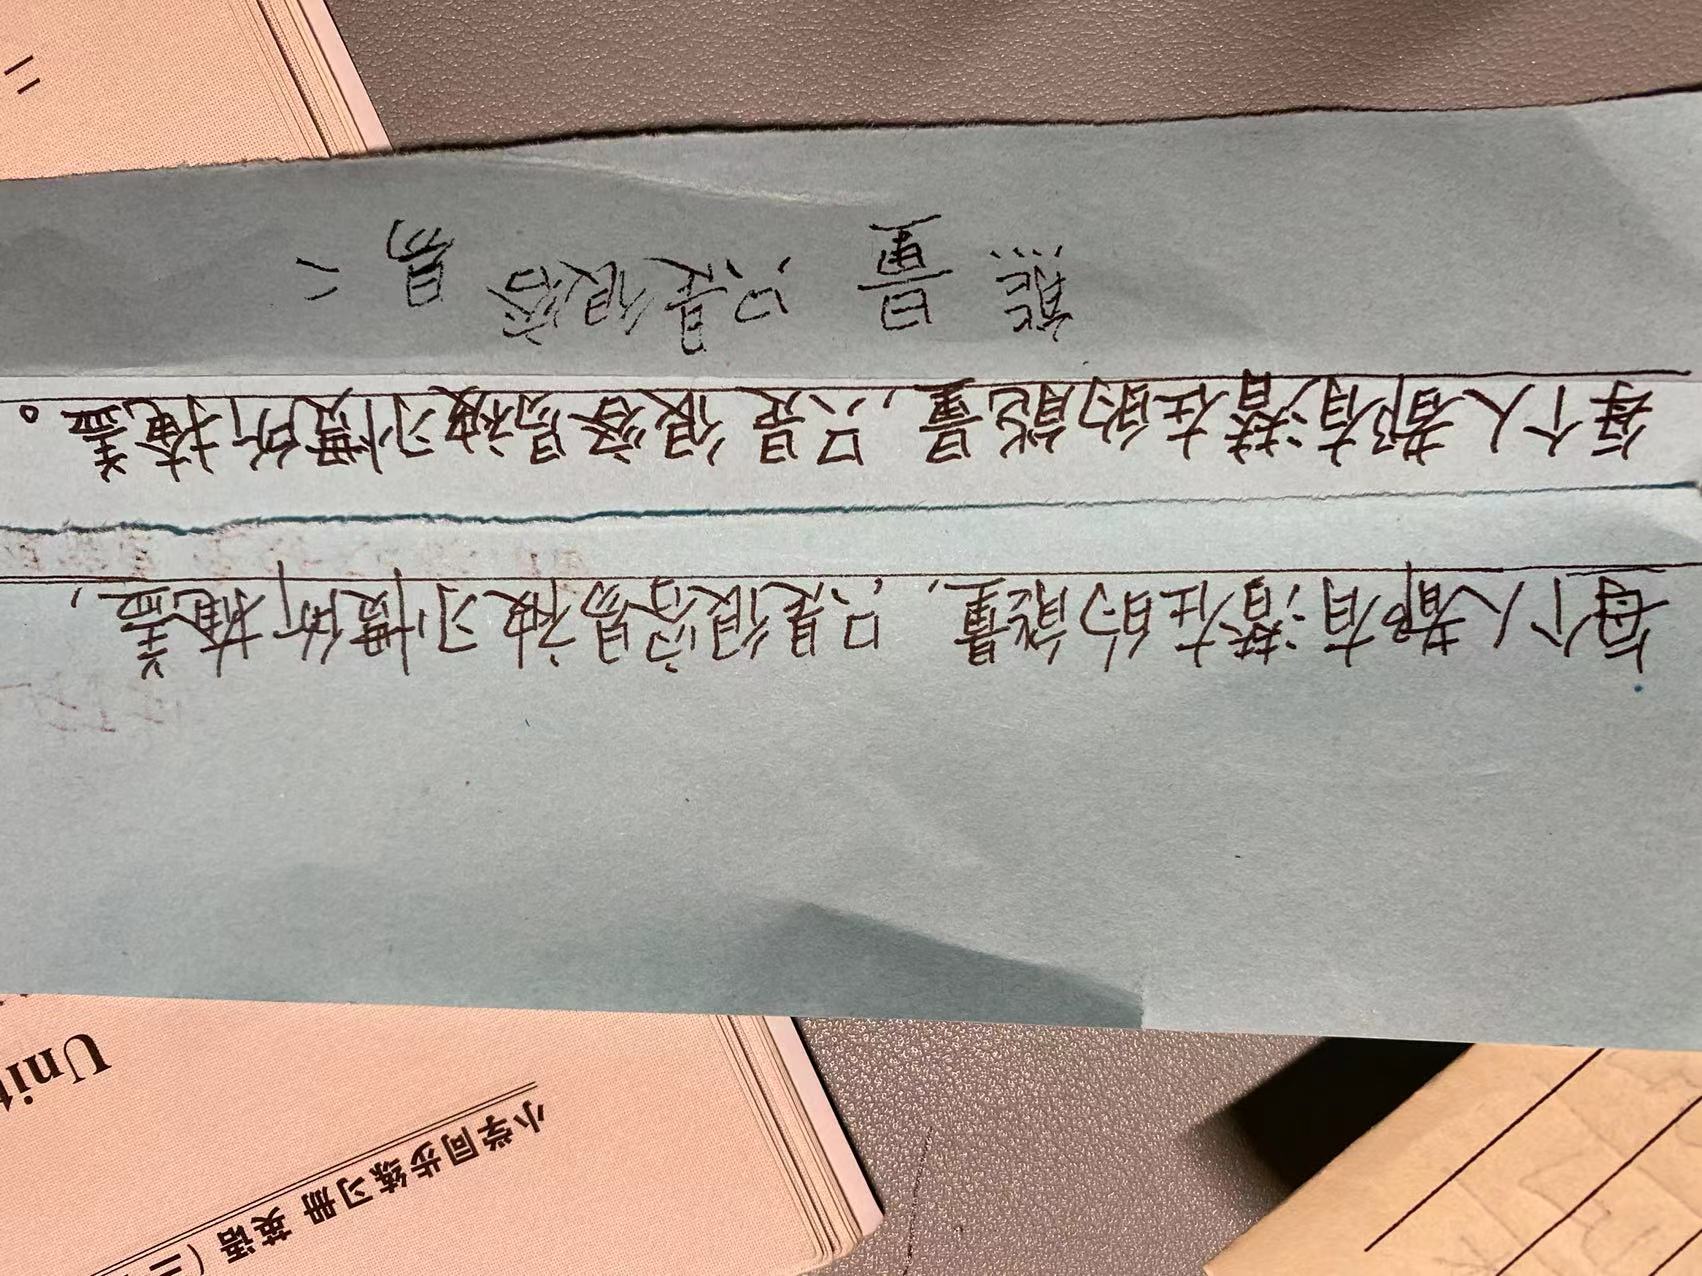 小学同步练习册 英语（三
Unit
每个人都有潜在的能量，只是很容易被习惯所掩盖，
每个人都有潜在的能量，只是很容易被习惯所掩盖。
熊 量 只是很容 易